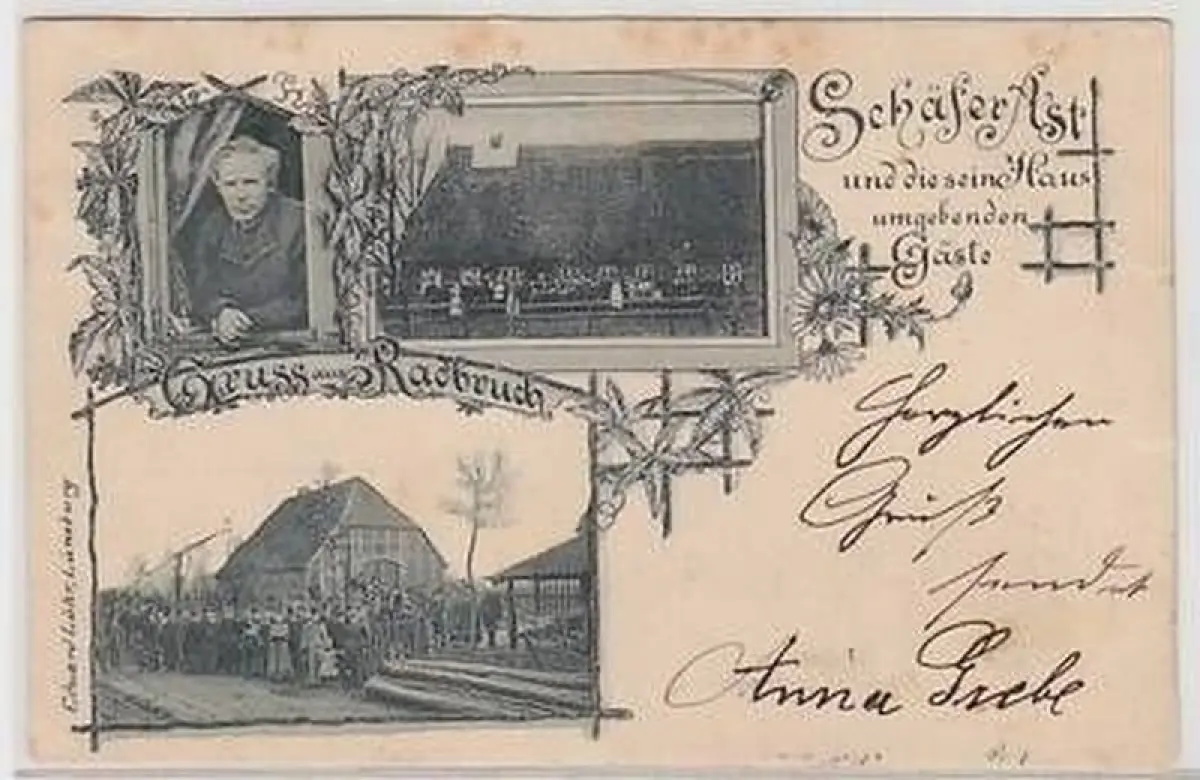 Schäfer Ast
und die sein Haus
umgebenden
Gäste
Gruss aus Radbruch
Herzlichen
Gruß
sendet
Anna Grebe
Eduard Lühr, Lüneburg